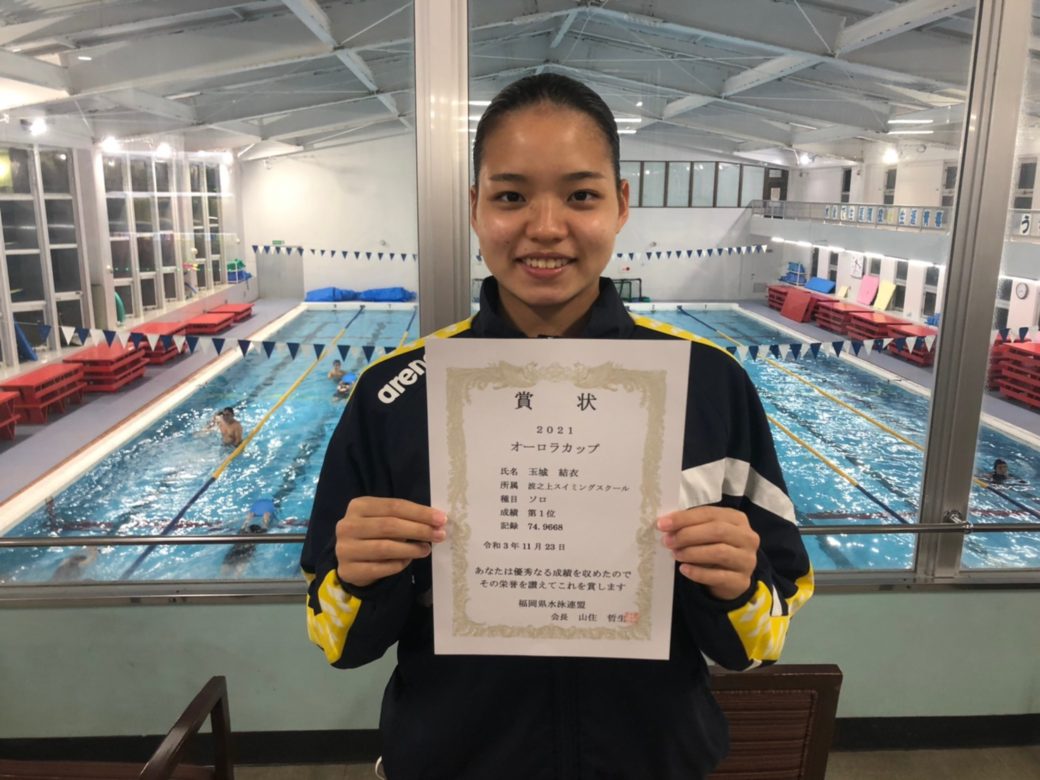 arena
賞 状
2021
オーロラカップ
氏名 玉城 結衣
所属 波之上スイミングスクール
種目 ソロ
成績 第1位
記録 74.9668
令和3年11月23日
あなたは優秀なる成績を収めたので
その栄誉を讃えてこれを賞します
福岡県水泳連盟
会長 山住 哲生